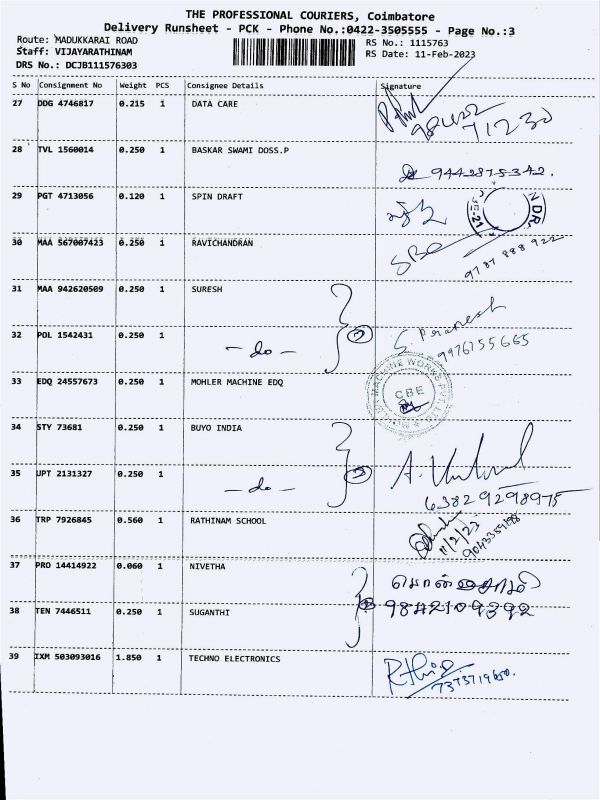 THE PROFESSIONAL COURIERS, Coimbatore
Delivery Runsheet - PCK - Phone No.:0422-3505555 - Page No.:3
Route: MADUKKARAI ROAD
RS No.: 1115763
Staff: VIJAYARATHINAM
RS Date: 11-Feb-2023
DRS No.: DCJB111576303
S No Consignment No Weight PCS Consignee Details Signature
27 DDG 4746817 0.215 1 DATA CARE
71230
28 TVL 1560014 0.250 1 BASKAR SWAMI DOSS.P
9442875342.
29 PGT 4713056 0.120 1 SPIN DRAFT
30 MAA 567007423 0.250 1 RAVICHANDRAN
9787 888 922
31 MAA 942620509 0.250 1 SURESH
S. Pranesh
32 POL 1542431 0.250 1 - do - 2
9976755665
33 EDQ 24557673 0.250 1 MOHLER MACHINE EDQ
MACHINE WORKS PVT. LTD
CBE
34 STY 73681 0.250 1 BUYO INDIA
35 UPT 2131327 0.250 1 - do - 2
63829298975
36 TRP 7926845 0.560 1 RATHINAM SCHOOL
11/2/23
9043359198
37 PRO 14414922 0.060 1 NIVETHA
38 TEN 7446511 0.250 1 SUGANTHI 2 9842109392
39 IXM 503093016 1.850 1 TECHNO ELECTRONICS
7373719650.